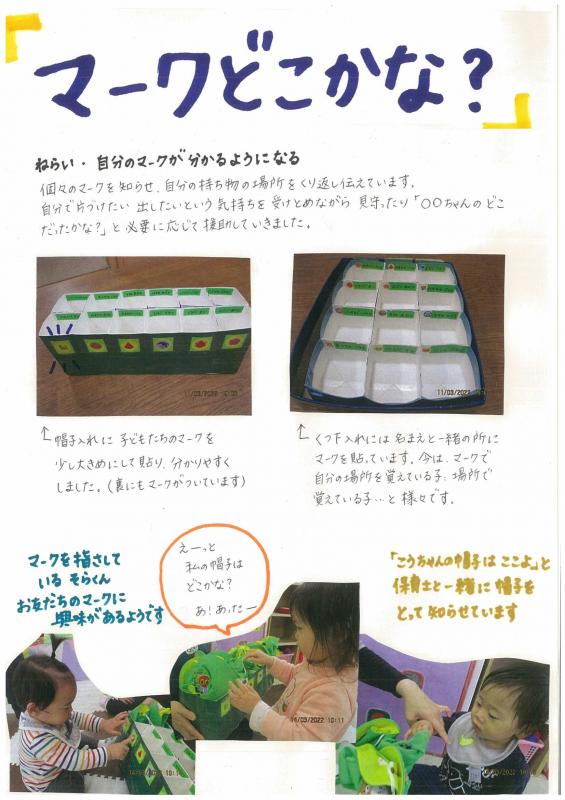 「マークどこかな？」
ねらい・自分のマークが分かるようになる
個々のマークを知らせ、自分の持ち物の場所をくり返し伝えています。
自分で片づけたい 出したいという気持ちを受けとめながら 見守ったり「〇〇ちゃんのどこ
だったかな？」と必要に応じて援助していきました。
11/03/2022
11/03/2022
↑帽子入れに子どもたちのマークを
少し大きめにして貼り、分かりやすく
しました。（裏にもマークがついています）
↑くつ下入れには名まえと一緒の所に
マークを貼っています。今は、マークで
自分の場所を覚えている子、場所で
覚えている子…と様々です。
マークを指さして
いる そらくん
お友だちのマークに
興味があるようです
えーっと
私の帽子は
どこかな？
あ！あったー
「こうちゃんの帽子は ここよ」と
保育士と一緒に帽子を
とって知らせています
14/03/2022 10:11